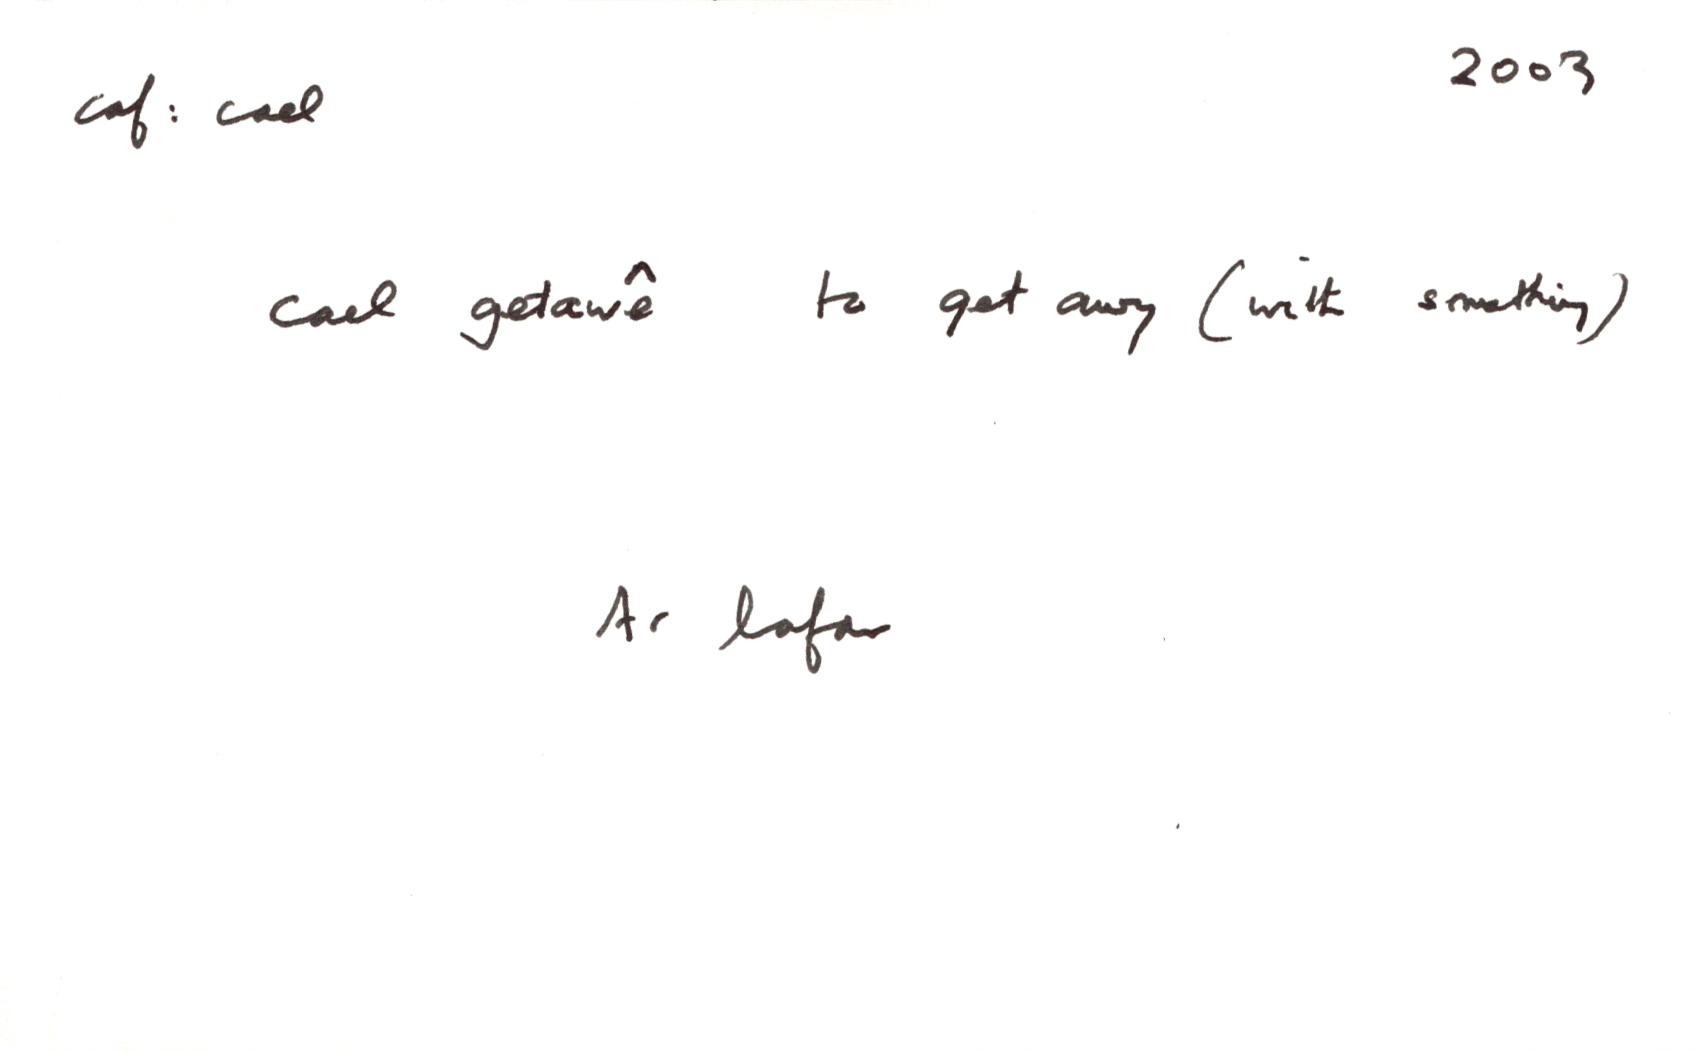 caf: cael 2003
cael getawê to get away (with something)
Ar lafar